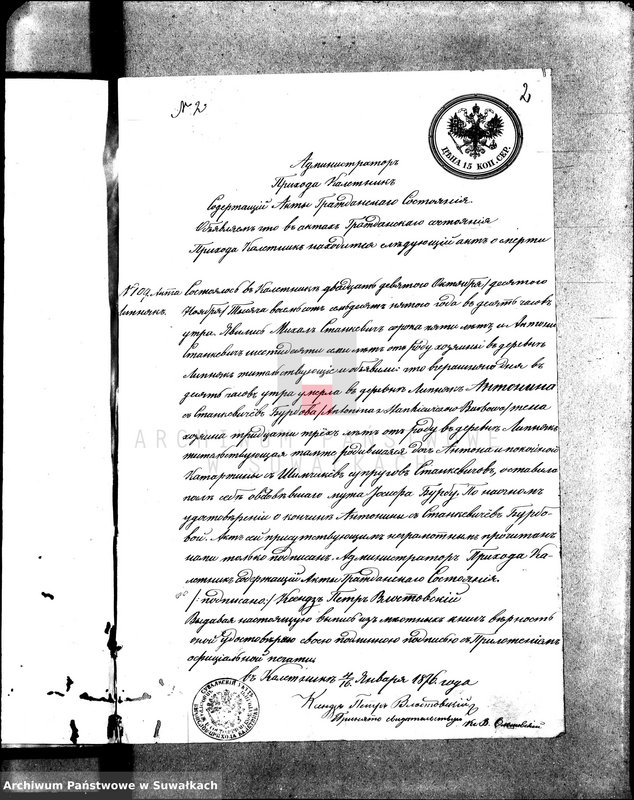 № 2
2
ЦѢНА 15 КОП. СЕР.
Администраторъ
Прихода Калетникъ
Содержащій Акты Гражданскаго Состоянія.
Объявляетъ что въ актахъ Гражданскаго состоянія
Прихода Калетникъ находится слѣдующій актъ о смерти
№ 109 Анта
Липнякъ.
Состоялось въ Калетникѣ двадцать девятаго Октября / десятаго
Ноября / Тысяча восемьсотъ семьдесятъ пятого года въ десять часовъ
утра. Явились Михалъ Станкевичъ сорока пяти лѣтъ и Антони
Станкевичъ шестидесяти семи лѣтъ отъ роду хозяины въ деревнѣ
Липнякъ жительствующіе и объявили: что вчерашняго дня въ
десять часовъ утра умерла въ деревнѣ Липнякъ Антонина
съ Станкевичёвъ Бурбова / Antonina z Stankiewiczów Burbowa / жена
хозяина тридцати трёхъ лѣтъ отъ роду въ деревнѣ Липнякъ
жительствующая тамже родившаяся дочь Антона и покойной
Катаржины съ Шимчиковъ супруговъ Станкевичовъ, оставила
послѣ себѣ овдовѣвшаго мужа Іосифа Бурбу. По наочномъ
удостовѣреніи о кончинѣ Антонины съ Станкевичёвъ Бурбо-
вой. Актъ сей присутствующимъ неграмотнымъ прочитанъ
нами только подписанъ. Администраторъ Прихода Ка-
летникъ содержащій Акты Гражданскаго Состоянія.
/: подписано:/ Ксендзъ Петръ Властовскій
Выдавая настоящую выпись изъ мѣстныхъ книгъ вѣрность
оной удостовѣряю своею подлинною подписью съ Приложеніемъ
официальной печати
въ Калетникѣ 4/16 Января 1876 года
Ксендзъ Петръ Властовскій
Принято свидетельствую
ARCHIWUM PAŃSTWOWE
W SUWAŁKACH
Archiwum Państwowe w Suwałkach